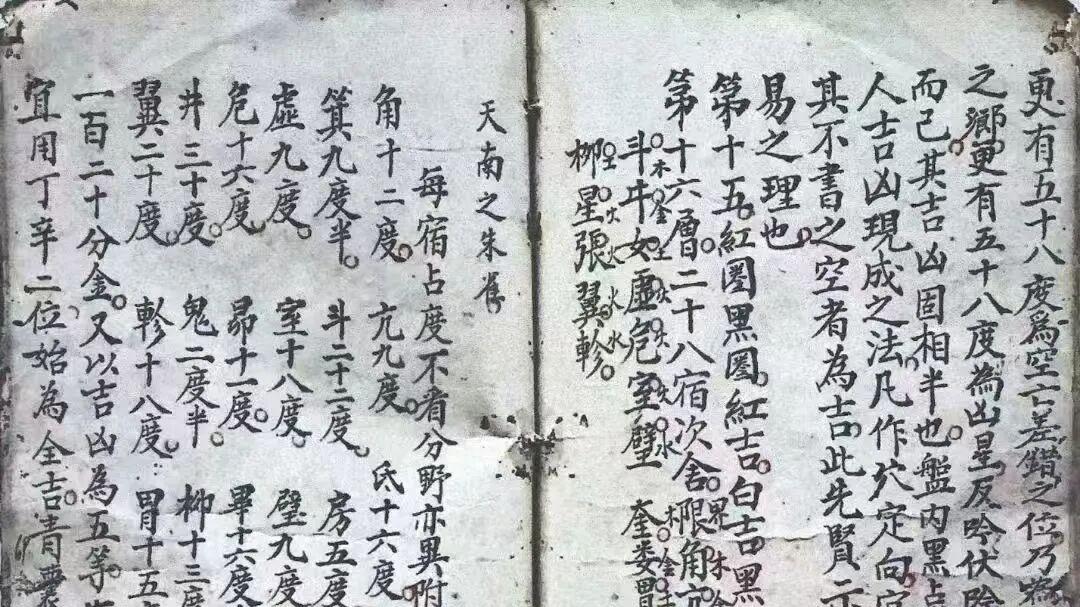 更有五十八度為空亡差錯之位乃為
之鄉更有五十八度為凶星反吟伏吟
而已其吉凶固相半也盤内黑点
人吉凶現成之法凡作穴定向
其不書之空者為吉此先賢
易之理也
第十五紅圈黑圈紅吉白吉黑
第十六層二十八宿次舍界限角亢
斗牛女虛危室壁 奎婁胃
柳星張翼軫
天南之朱雀
每宿占度不看分野亦異附
角十二度 亢九度 氐十六度
箕九度半 斗二十二度 房五度
虛九度 室十八度 壁九度
危十六度 昴十一度 畢十六度
井三十度 鬼二度半 柳十三度
翼二十度 軫十八度 胃十五
一百二十分金又以吉凶為五等
宜用丁辛二位始為全吉青囊